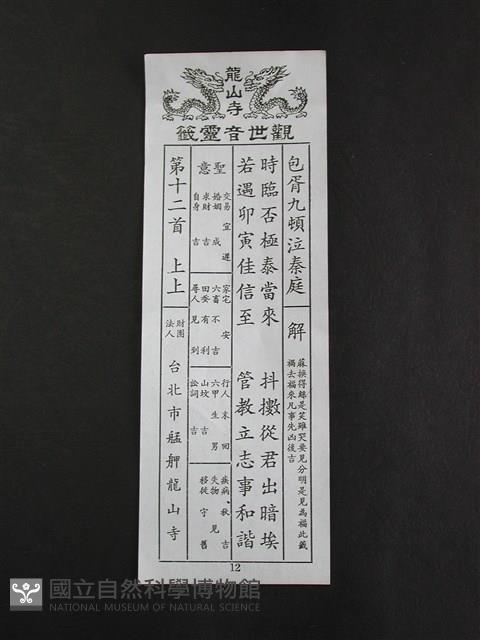 龍山寺
觀世音靈籤
包胥九頓泣秦庭
解
蘇操得歸是笑雖哭要見分明是見為福此籤
禍去福來凡事先凶後吉
時臨否極泰當來 抖擻從君出暗埃
若遇卯寅佳信至 管教立志事和諧
聖意
交易 宜遲
婚姻 成
求財 吉
自身 吉
家宅 安
六畜 不吉
田蚕 有利
尋人 見到
行人 未回
六甲 生男
山坟 吉
訟詞 吉
疾病、秋吉
失物 見
移徒 守舊
第十二首 上上
財團法人 台北市艋舺龍山寺
12
國立自然科學博物館
NATIONAL MUSEUM OF NATURAL SCIENCE